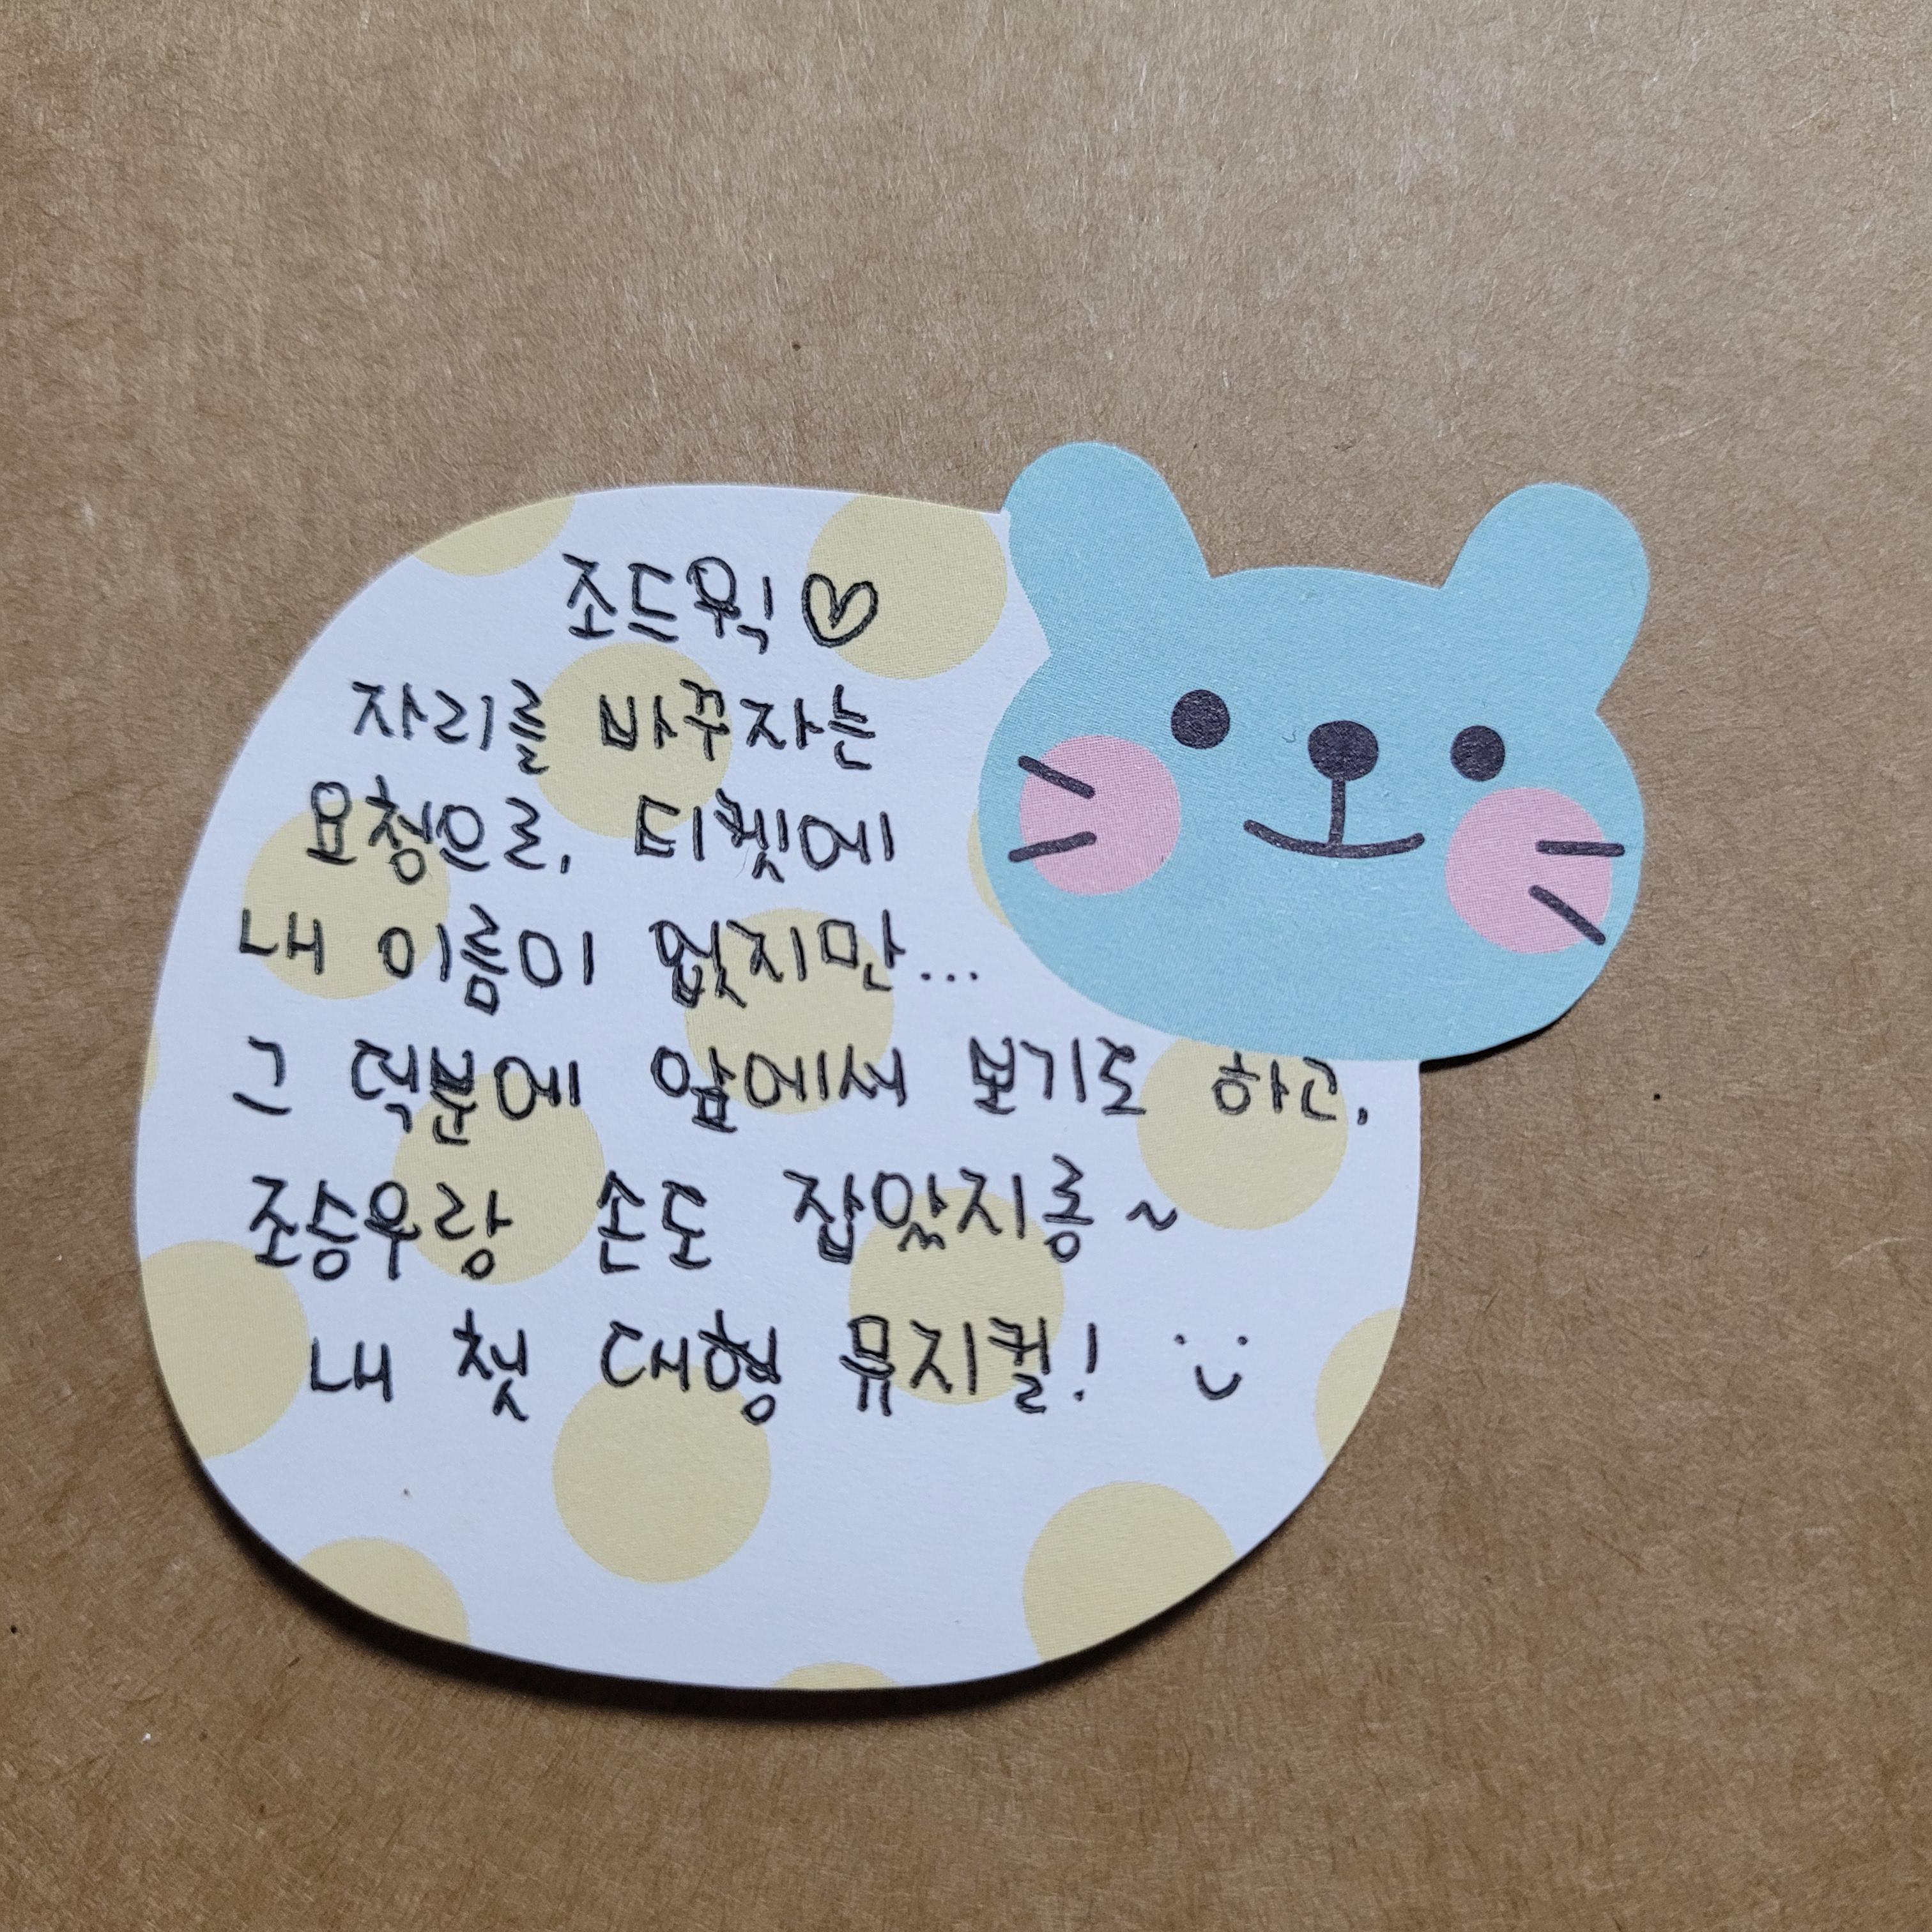 조드윅♡
자리를 바꾸자는
요청으로, 티켓에
내 이름이 없지만...
그 덕분에 앞에서 보기도 하고,
조승우랑 손도 잡았지롱~
내 첫 대형 뮤지컬! :)